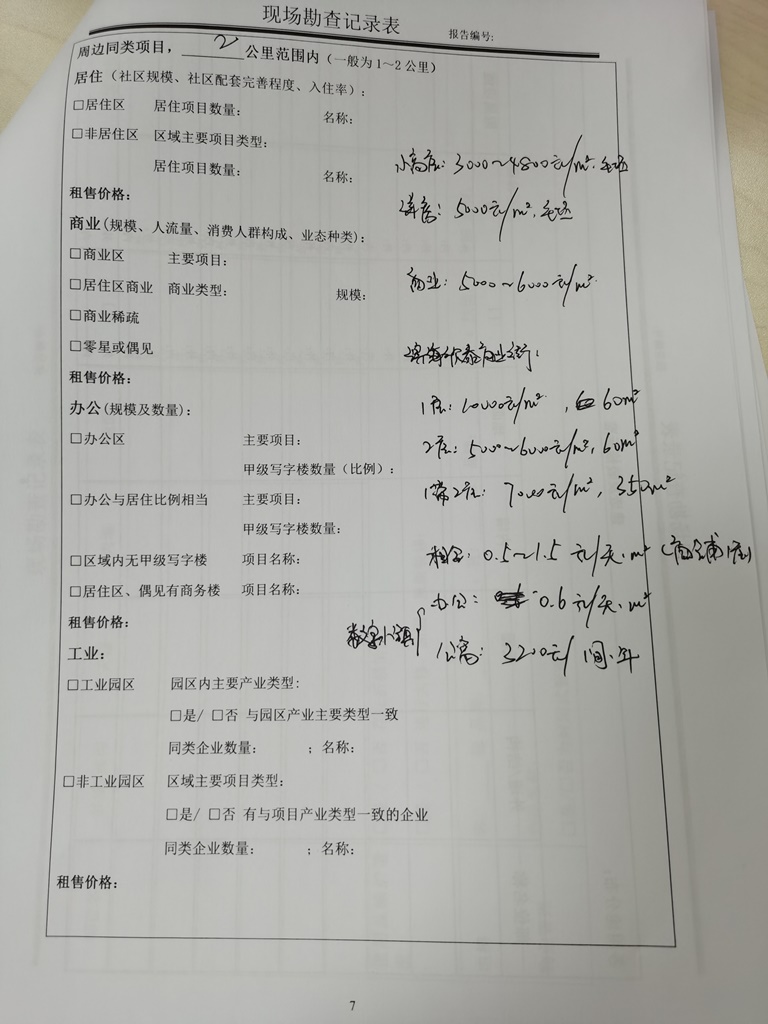 现场勘查记录表
报告编号:
周边同类项目，2公里范围内（一般为1～2公里）
居住（社区规模、社区配套完善程度、入住率）:
□居住区 居住项目数量: 名称:
□非居住区 区域主要项目类型:
居住项目数量: 名称: 小高层: 3000～4800元/m². 毛坯
租售价格: 洋房: 5000元/m². 毛坯
商业(规模、人流量、消费人群构成、业态种类):
□商业区 主要项目:
□居住区商业 商业类型: 规模: 商业: 5000～6000元/m²
□商业稀疏
□零星或偶见 商业街:
租售价格:
办公(规模及数量): 1层: 10000元/m², 60m²
□办公区 主要项目: 2层: 5000～6000元/m², 60m²
甲级写字楼数量（比例）:
□办公与居住比例相当 主要项目: 1带2层: 7000元/m², 350m²
甲级写字楼数量:
□区域内无甲级写字楼 项目名称: 租金: 0.5～1.5 元/天·m² (商铺1层)
□居住区、偶见有商务楼 项目名称: 办公: 0.6元/天·m²
租售价格: 小镇
工业: 公寓: 3200元/间·年
□工业园区 园区内主要产业类型:
□是/ □否 与园区产业主要类型一致
同类企业数量: ；名称:
□非工业园区 区域主要项目类型:
□是/ □否 有与项目产业类型一致的企业
同类企业数量: ；名称:
租售价格:
7